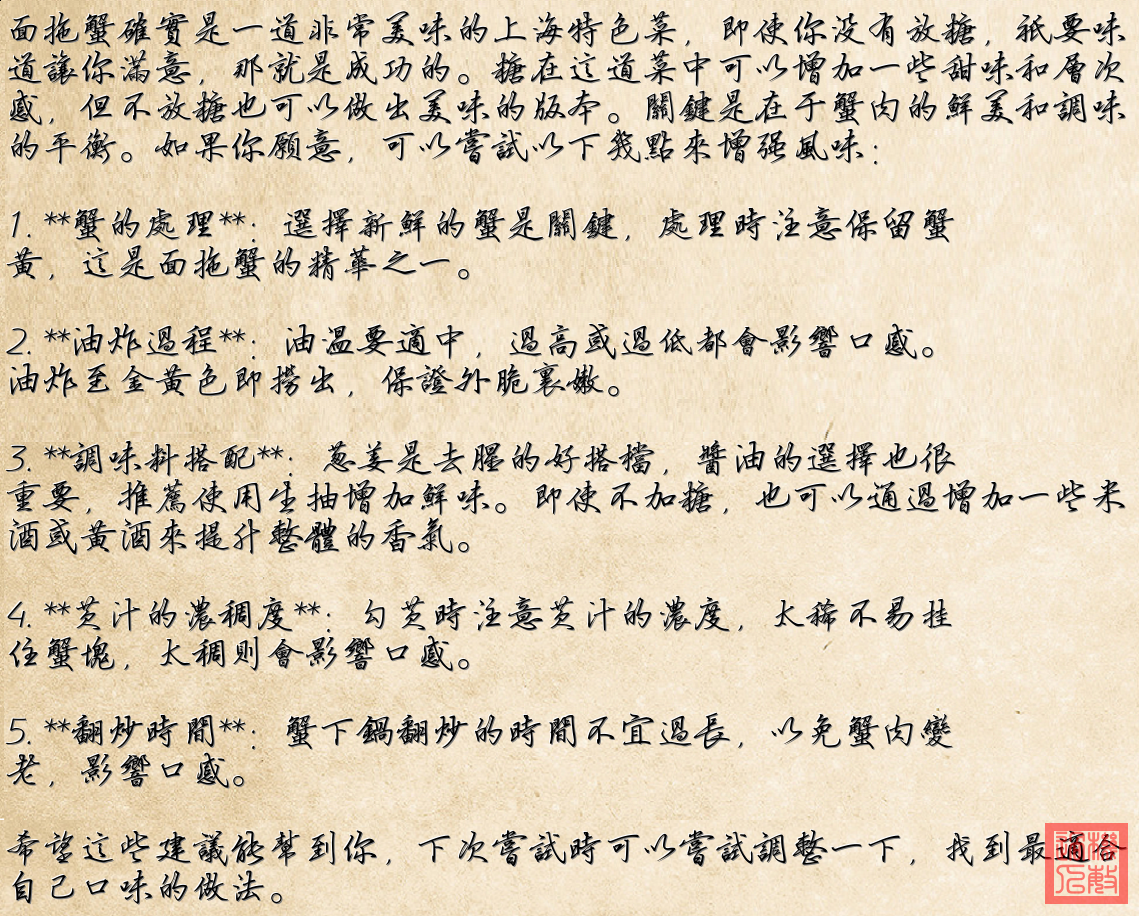 面拖蟹確實是一道非常美味的上海特色菜，即使你没有放糖，祇要味
道讓你滿意，那就是成功的。糖在這道菜中可以增加一些甜味和層次
感，但不放糖也可以做出美味的版本。關鍵是在于蟹肉的鮮美和調味
的平衡。如果你願意，可以嘗試以下幾點來增强風味：
1. **蟹的處理**：選擇新鮮的蟹是關鍵，處理時注意保留蟹
黄，這是面拖蟹的精華之一。
2. **油炸過程**：油温要適中，過高或過低都會影響口感。
油炸至金黄色即撈出，保證外脆裏嫩。
3. **調味料搭配**：葱姜是去腥的好搭檔，醬油的選擇也很
重要，推薦使用生抽增加鮮味。即使不加糖，也可以通過增加一些米
酒或黄酒來提升整體的香氣。
4. **芡汁的濃稠度**：勾芡時注意芡汁的濃度，太稀不易挂
住蟹塊，太稠則會影響口感。
5. **翻炒時間**：蟹下鍋翻炒的時間不宜過長，以免蟹肉變
老，影響口感。
希望這些建議能幫到你，下次嘗試時可以嘗試調整一下，找到最適合
自己口味的做法。